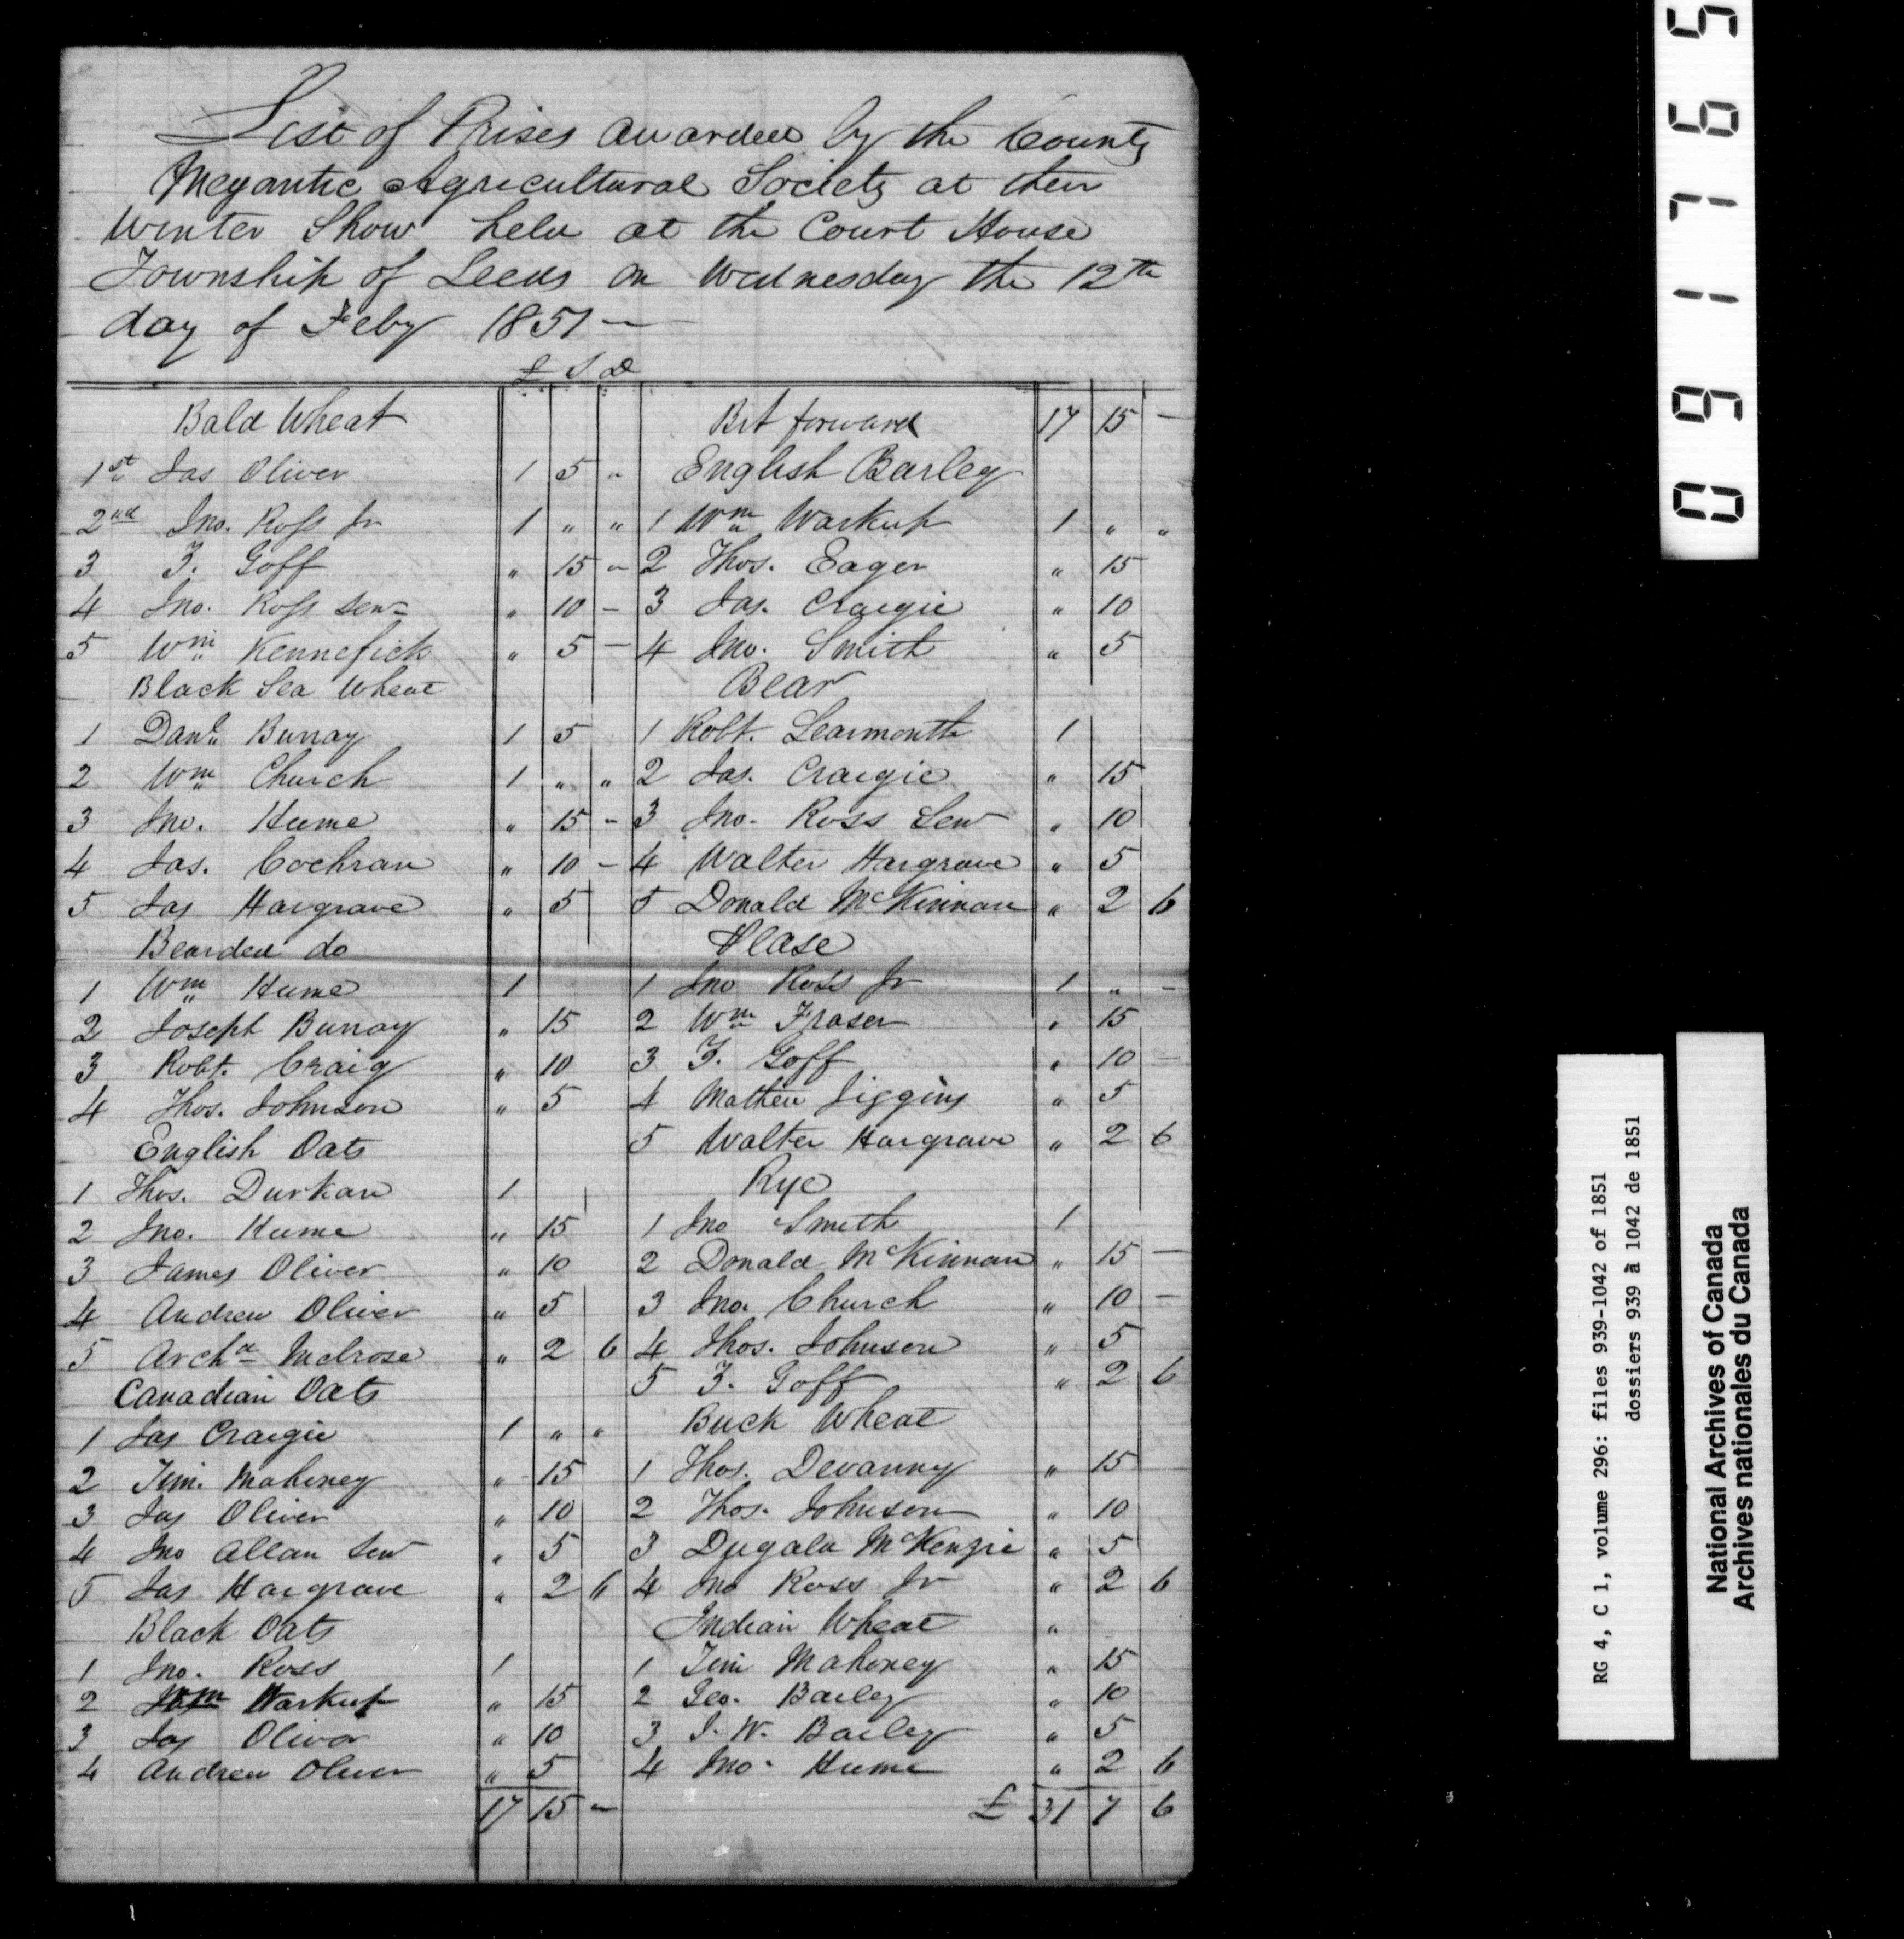 List of Prises awarded by the County
Megantic Agricultural Society at their
Winter Show held at the Court House
Township of Leeds on Wednesday the 12th
day of Feby 1851 —
£ S D
Bald Wheat
1st Jas Oliver 1 5 "
2nd Jno. Ross Jr 1 " "
3 F. Goff " 15 "
4 Jno. Ross Senr " 10 –
5 Wm Kennefick " 5 –
Black Sea Wheat
1 Danl. Bunay 1 5
2 Wm Church 1 " "
3 Jno. Hume " 15 –
4 Jas. Cochran " 10 –
5 Jas Hargrave " 5
Bearded do
1 Wm Hume 1
2 Joseph Bunay " 15
3 Robt. Craig " 10
4 Thos. Johnson " 5
English Oats
1 Thos. Durkan 1
2 Jno. Hume " 15
3 James Oliver " 10
4 Andrew Oliver " 5
5 Archd Melrose " 2 6
Canadian Oats
1 Jas Craigie 1 " "
2 Tim. Mahoney " 15
3 Jas Oliver " 10
4 Jno Allan Senr " 5
5 Jas Hargrave " 2 6
Black Oats
1 Jno. Ross 1
2 Wm Warkup " 15
3 Jas Oliver " 10
4 Andrew Oliver " 5
17 15 –
Brt forward 17 15 –
English Barley
1 Wm Warkup 1 " "
2 Thos. Eager " 15
3 Jas. Craigie " 10
4 Jno. Smith " 5
Bear
1 Robt. Learmonth 1
2 Jas. Craigie " 15
3 Jno. Ross Senr " 10
4 Walter Hargrave " 5
5 Donald McKinnan " 2 6
Pease
1 Jno Ross Jr 1 " –
2 Wm Fraser " 15
3 F. Goff " 10 –
4 Mathew Jiggins " 5
5 Walter Hargrave " 2 6
Rye
1 Jno Smith 1
2 Donald McKinnan " 15 –
3 Jno. Church " 10 –
4 Thos. Johnson " 5
5 F. Goff " 2 6
Buck Wheat
1 Thos. Devanny " 15
2 Thos. Johnson " 10
3 Dugald McKenzie " 5
4 Jno Ross Jr " 2 6
Indian Wheat "
1 Tim Mahoney " 15
2 Geo. Bailey " 10
3 J. W. Bailey " 5
4 Jno. Hume " 2 6
£ 31 7 6
091765
RG 4, C 1, volume 296: files 939-1042 of 1851
dossiers 939 à 1042 de 1851
National Archives of Canada
Archives nationales du Canada